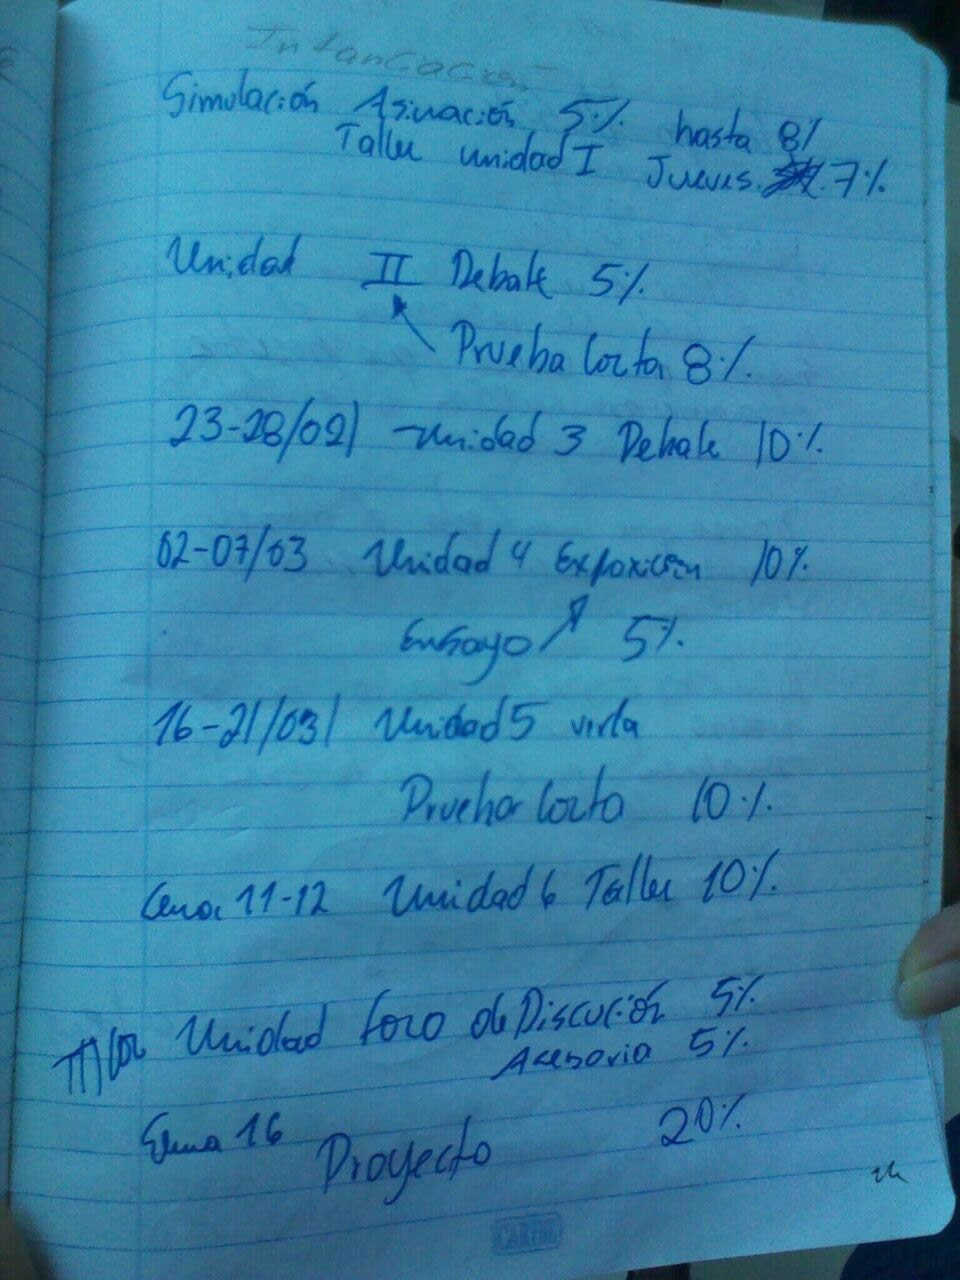 Simulación Asinación 5% hasta 8%
Taller unidad I Jueves. 7%
Unidad II Debate 5%
Prueba Corta 8%.
23-28/02/ Unidad 3 Debate 10%
02-07/03 Unidad 4 Exposición 10%
Ensayo 5%
16-21/03/ Unidad 5 virla
Prueba Corta 10%
11-12 Unidad 6 Taller 10%
Unidad foro de Discución 5%
Asesoria 5%
16 Proyecto 20%